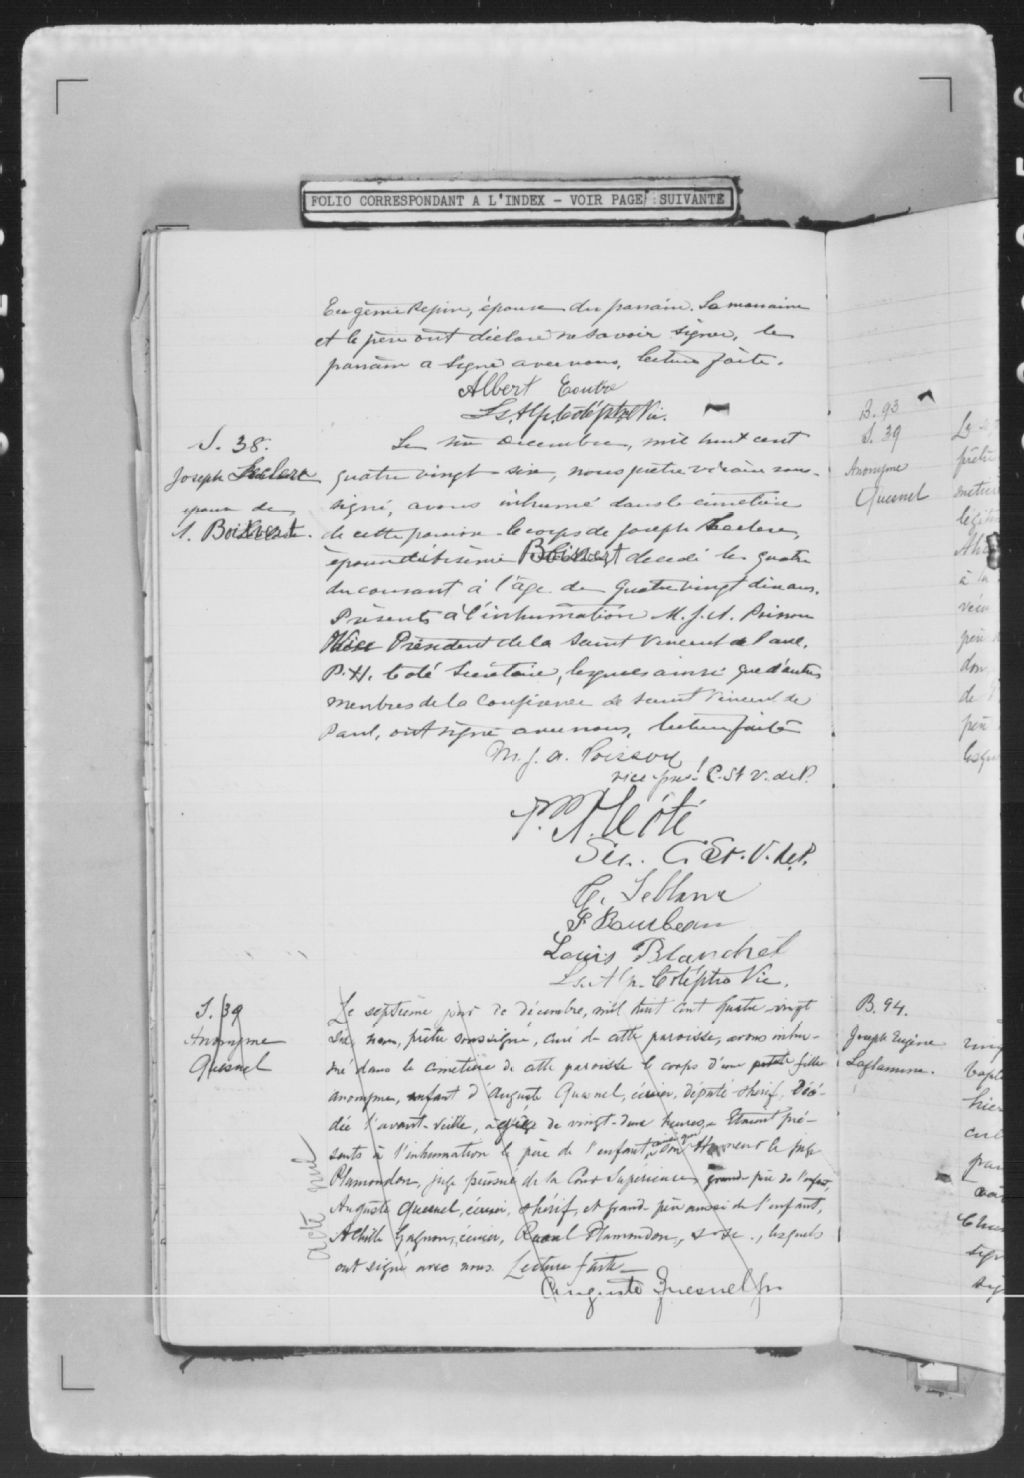 FOLIO CORRESPONDANT A L'INDEX - VOIR PAGE SUIVANTE
Eugénie Pepin, épouse du parrain. La marraine
et le père ont déclaré ne savoir signer, le
parrain a signé avec nous, lecture faite.
Albert Coutre
Ls. Alp. Coté ptre Vic.
S. 38.
Joseph Leclerc
époux de
A. Boisvert.
Le six decembre, mil huit cent
quatre vingt-six, nous prêtre vicaire sous-
signé, avons inhumé dans le cimetière
de cette paroisse le corps de Joseph Leclerc,
époux d'Artémise Boisvert decedé le quatre
du courant à l'âge de quatre vingt dix ans.
Présents à l'inhumation M. J. A. Poisson
Vice Président de la Saint Vincent de Paul,
P. H. Coté Secrétaire, lesquels ainsi que d'autres
membres de la Conférence de Saint Vincent de
Paul, ont signé avec nous, lecture faite
M. J. A. Poisson
vice-pres! C. St V. de P.
P. H. Côté
Sec. C. St. V. de P.
C. Leblanc
F. Bourbeau
Louis Blanchet
Ls. Alp. Coté ptre Vic.
S. 39
Anonyme
Quesnel
Acte nul
Le septième jour de décembre, mil huit cent quatre vingt
six, nous, prêtre soussigné, curé de cette paroisse, avons inhu-
mé dans le cimetière de cette paroisse le corps d'une petite fille
anonyme, enfant d'Auguste Quesnel, écuier, député shérif, décé-
dée l'avant-veille, âgée de vingt-deux heures. Etaient pré-
sents à l'inhumation le père de l'enfant, ainsi que Son Honneur le juge
Plamondon, juge puisné de la Cour Supérieure, grand-père de l'enfant,
Auguste Quesnel, écuier, shérif, et grand-père aussi de l'enfant,
Achille Gagnon, écuier, Raoul Plamondon, lesquels
ont signé avec nous. Lecture faite
Auguste Quesnel jr
B. 93
S. 39
Anonyme
Quesnel
B. 94.
Joseph Eugène
Laflamme.